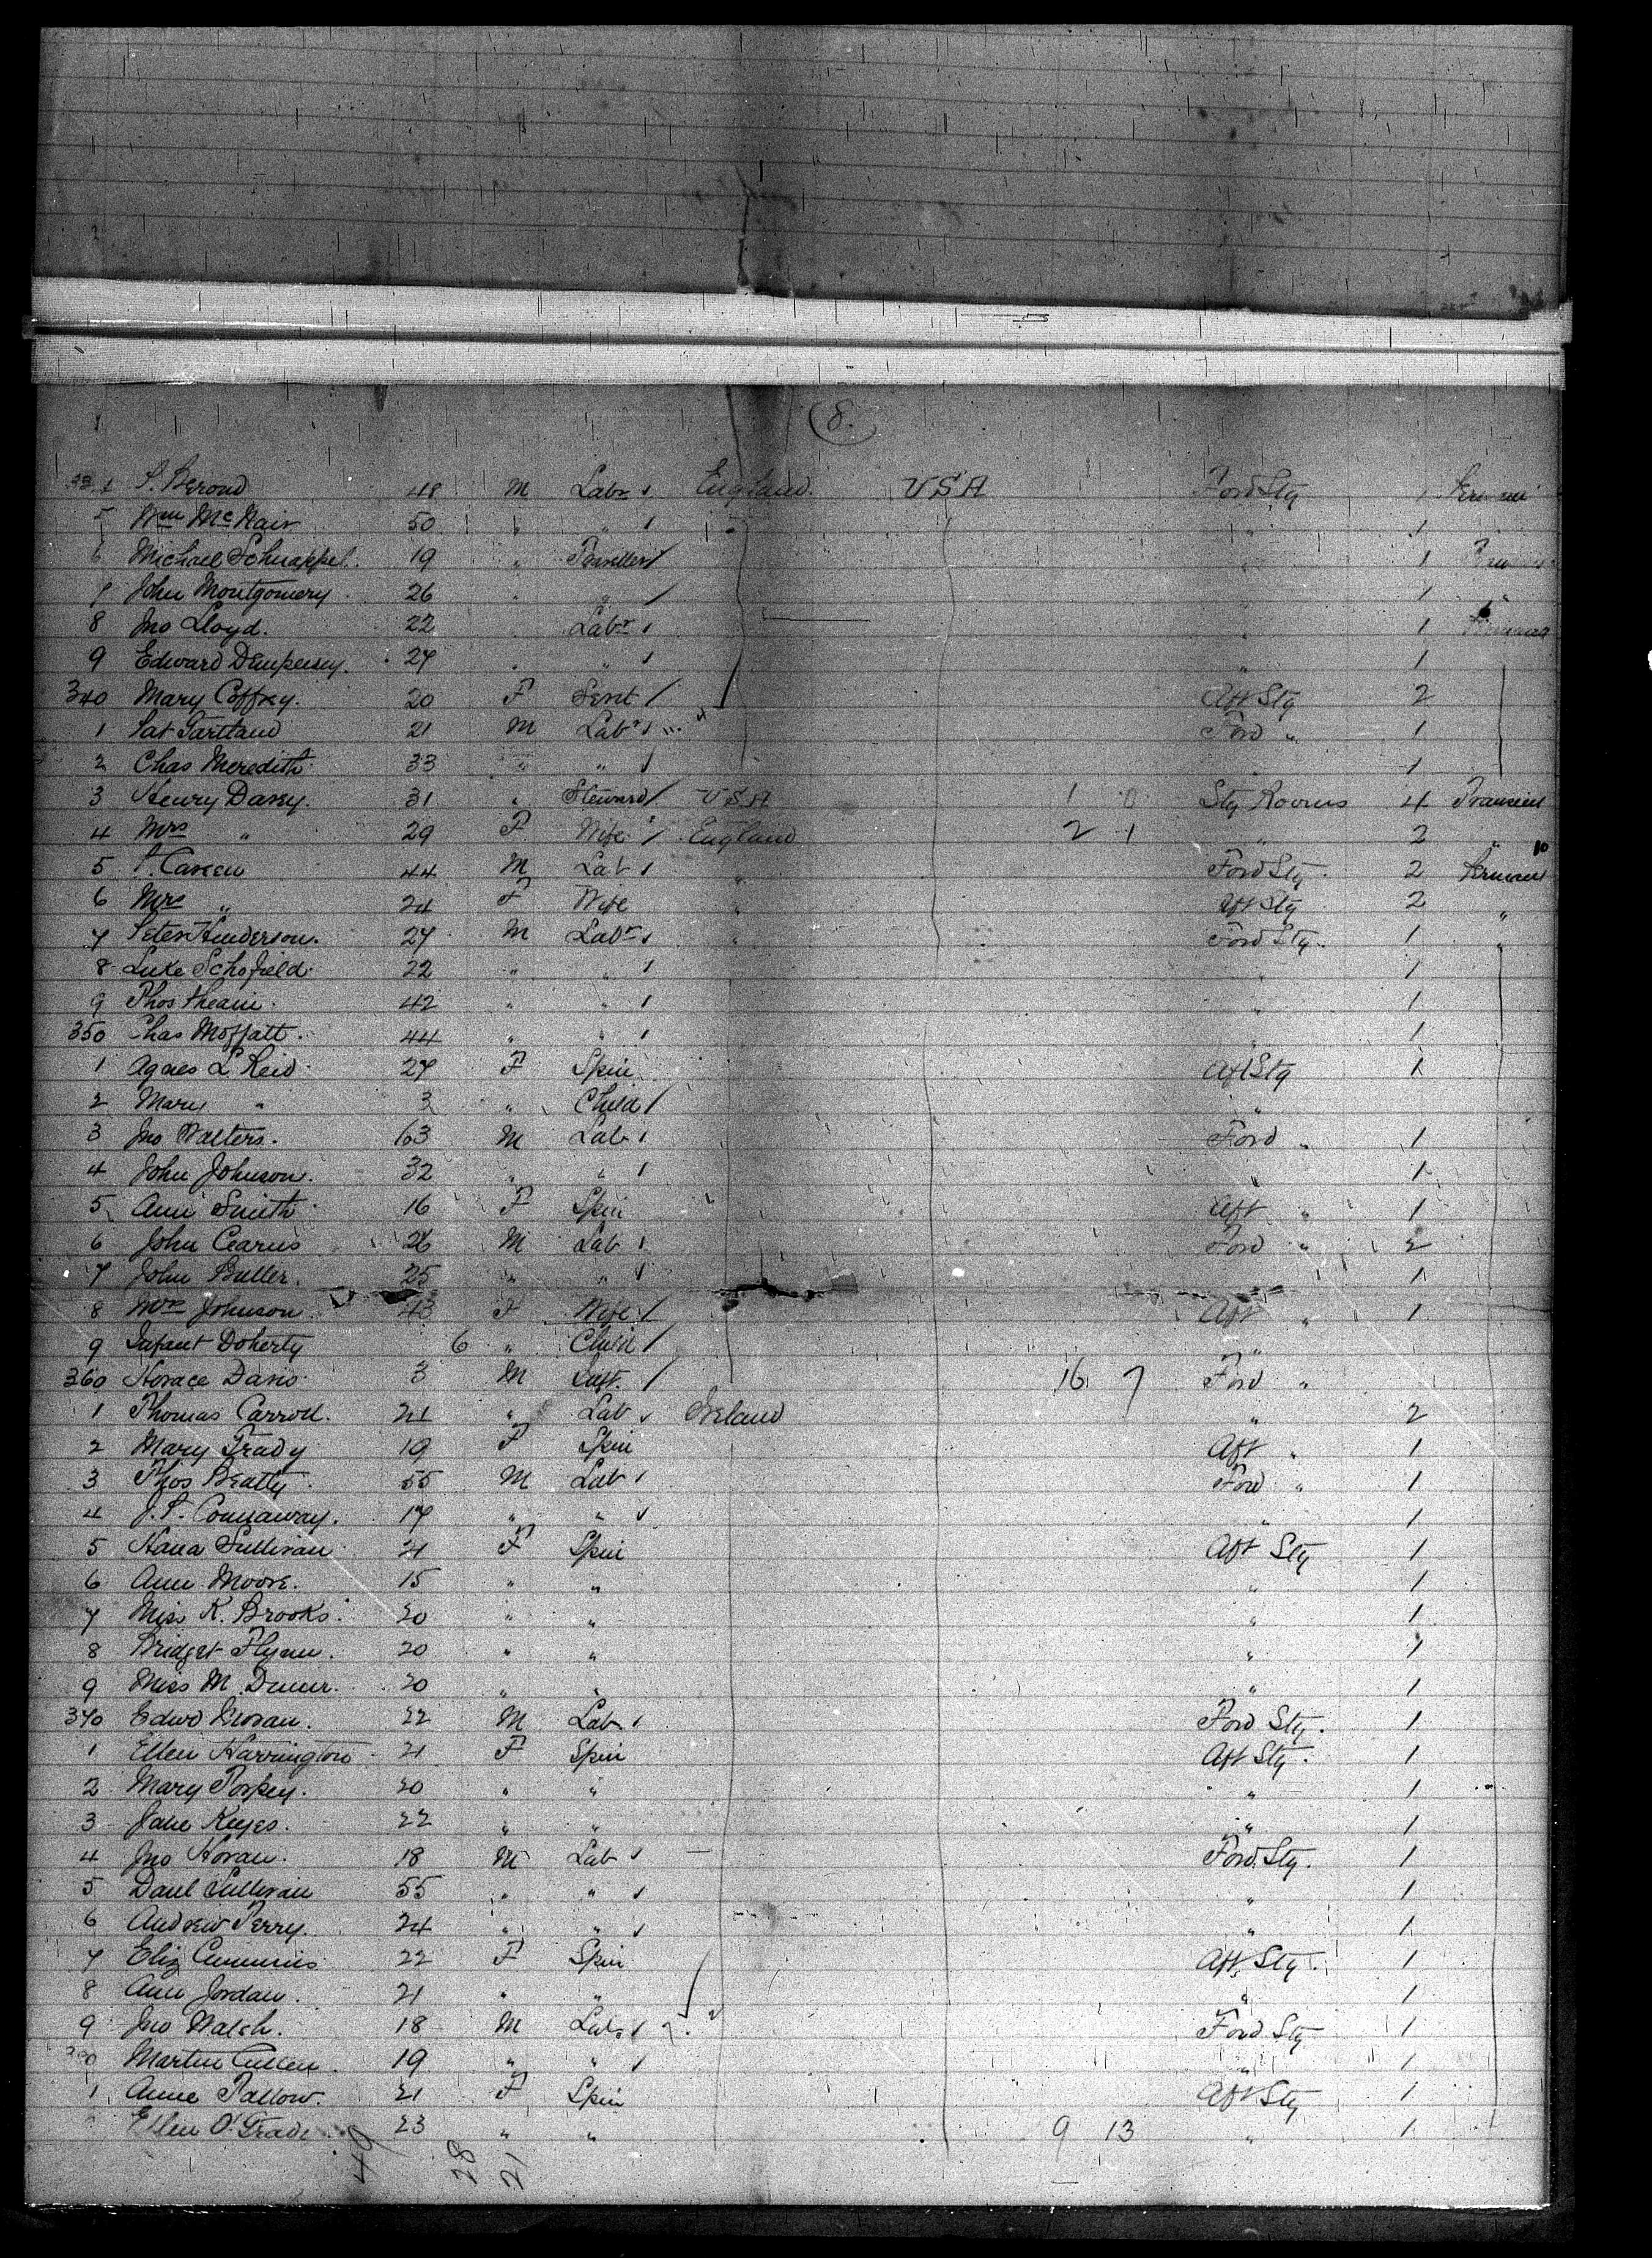 8.
S. Berond 48 M Labr England. USA Ford Stg 1
5 Wm McNair 50 " " 1
6 Michael Schnappel. 19 " Traveller " 1
7 John Montgomery. 26 " " 1
8 Jno Lloyd. 22 Labr " 1
9 Edward Dempersey. 27 " " " 1
340 Mary Coffey. 20 F Servt Aft Stg 2
1 Pat Gartland 21 M Labr Ford " 1
2 Chas Meredith 33 " " 1
3 Henry Davey. 31 " Steward USA 1 0 Stg Rooms 4 Transient
4 Mrs " 29 F Wife England 2 1 " 2 "
5 44 M Lab " Ford Stg. 2
6 Mrs " 24 F Wife " Aft Stg 2 "
7 Peter Henderson. 27 M Labr " Ford Stg. 1 "
8 Luke Schofield. 22 " " " 1
9 Thos 42 " " " 1
350 Chas Moffatt. 44 " " " 1
1 Agnes L. Reid 27 F Spin Aft Stg 1
2 Mary " 3 " Child "
3 Jno Walters. 63 M Lab Ford " 1
4 John Johnson. 32 " " " 1
5 Ann Smith 16 F Spin Aft " 1
6 John Cearns 26 M Lab Ford " 2
7 John Butler. 25 " " 1
8 Mrs Johnson 43 F Wife Aft " 1
9 Infant Doherty 6 " Child " "
360 Horace Davis 3 M Inft. 16 7 Ford "
1 Thomas Carroll. 21 " Lab Ireland " 2
2 Mary Grady 19 F Spin Aft " 1
3 Thos Beatty 55 M Lab Ford " 1
4 J. P. Connaway. 17 " " " 1
5 Hana Sullivan 21 F Spin Aft Stg 1
6 Ann Moore. 15 " " " 1
7 Miss K. Brooks. 20 " " " 1
8 Bridget Flynn. 20 " " " 1
9 Miss M. 20 " " " 1
370 Edwd 22 M Lab. Ford Stg. 1
1 Ellen Harrington 21 F Spin Aft Stg. 1
2 Mary 20 " " " 1
3 Jane Keyes. 22 " " " 1
4 Jno Horan. 18 M Lab Ford Stg. 1
5 Danl Sullivan 55 " " " 1
6 Andrew Perry. 24 " " " 1
7 Eliz Cummins 22 F Spin Aft Stg. 1
8 Ann Jordan. 21 " " " 1
9 Jno Walsh. 18 M Lab. Ford Stg 1
Martin Cullen. 19 " " " 1
1 Anne Tallow. 21 F Spin Aft Stg 1
Ellen O'Grade 23 " " 9 13 " 1
49 28 21